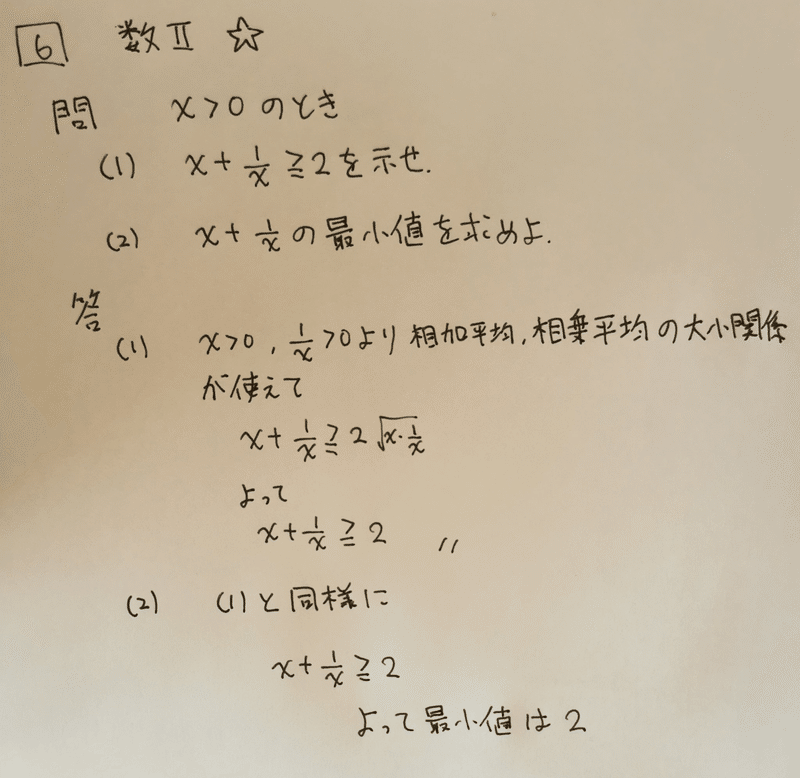 6 数II ☆
問 x>0のとき
(1) x+1/x≧2を示せ.
(2) x+1/xの最小値を求めよ.
答
(1) x>0, 1/x>0より相加平均,相乗平均の大小関係
が使えて
x+1/x≧2√(x・1/x)
よって
x+1/x≧2 〃
(2) (1)と同様に
x+1/x≧2
よって最小値は2